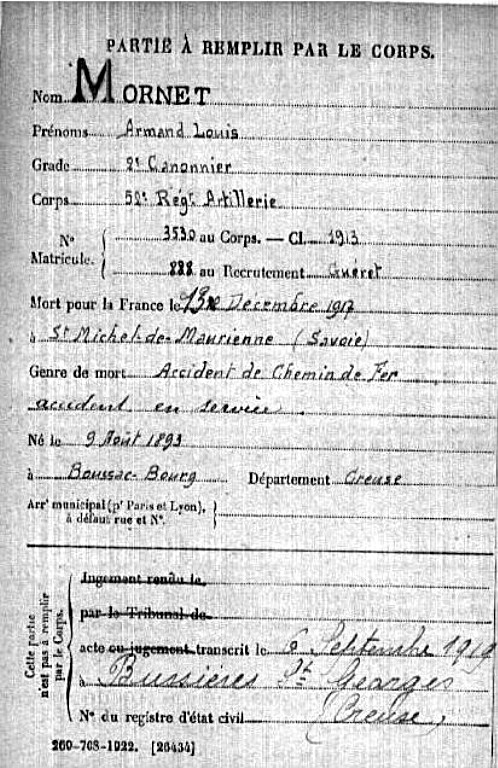 PARTIE À REMPLIR PAR LE CORPS.
Nom MORNET
Prénoms Armand Louis
Grade 2e Canonnier
Corps 52e Régt Artillerie
No Matricule. { 3530 au Corps. — Cl. 1913
888 au Recrutement Guéret
Mort pour la France le 13 Décembre 1917
à St Michel-de-Maurienne (Savoie)
Genre de mort Accident de Chemin de Fer
accident en service
Né le 9 Août 1893
à Boussac-Bourg Département Creuse
Arrt municipal (pr Paris et Lyon),
à défaut rue et No.
Cette partie n'est pas à remplir par le Corps.
Jugement rendu le
par le Tribunal de
acte ou jugement transcrit le 6 Septembre 1919
à Bussières St Georges
(Creuse)
No du registre d'état civil
260-708-1922. [26434]